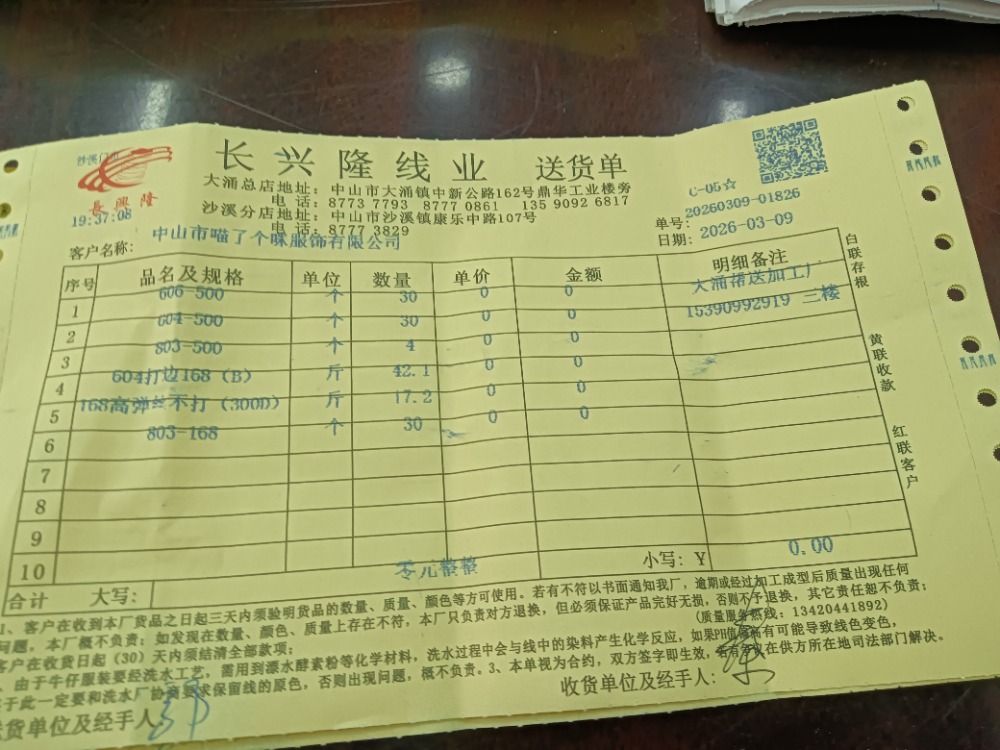 沙溪门市
長興隆
19:37:08
长兴隆线业 送货单
大涌总店地址：中山市大涌镇中新公路162号鼎华工业楼旁
电话：8773 7793 8777 0861 135 9092 6817
沙溪分店地址：中山市沙溪镇康乐中路107号
电话：8777 3829
C-05☆
单号：20260309-01826
日期：2026-03-09
客户名称：中山市喵了个咪服饰有限公司
序号 品名及规格 单位 数量 单价 金额 明细备注
1 606-500 个 30 0 0 大涌帮送加工厂
2 604-500 个 30 0 0 15390992919 三楼
3 803-500 个 4 0 0
4 604打边168（B） 斤 42.1 0 0
5 168高弹丝不打（300D） 斤 17.2 0 0
6 803-168 个 30 0 0
7
8
9
10
合计 大写：零元整整 小写：￥ 0.00
白联存根
黄联收款
红联客户
1、客户在收到本厂货品之日起三天内须验明货品的数量、质量、颜色等方可使用。若有不符以书面通知我厂，逾期或经过加工成型后质量出现任何
问题，本厂概不负责；如发现在数量、颜色、质量上存在不符，本厂只负责对方退换，但必须保证产品完好无损，否则不予退换，其它责任恕不负责；
客户在收货日起（30）天内须结清全部款项； （质量服务热线：13420441892）
、由于牛仔服装要经洗水工艺，需用到漂水酵素粉等化学材料，洗水过程中会与线中的染料产生化学反应，如果PH值 有可能导致线色变色，
于此一定要和洗水厂协商要求保留线的原色，否则出现问题，概不负责。3、本单视为合约，双方签字即生效，若有争议在供方所在地司法部门解决。
货单位及经手人
收货单位及经手人：